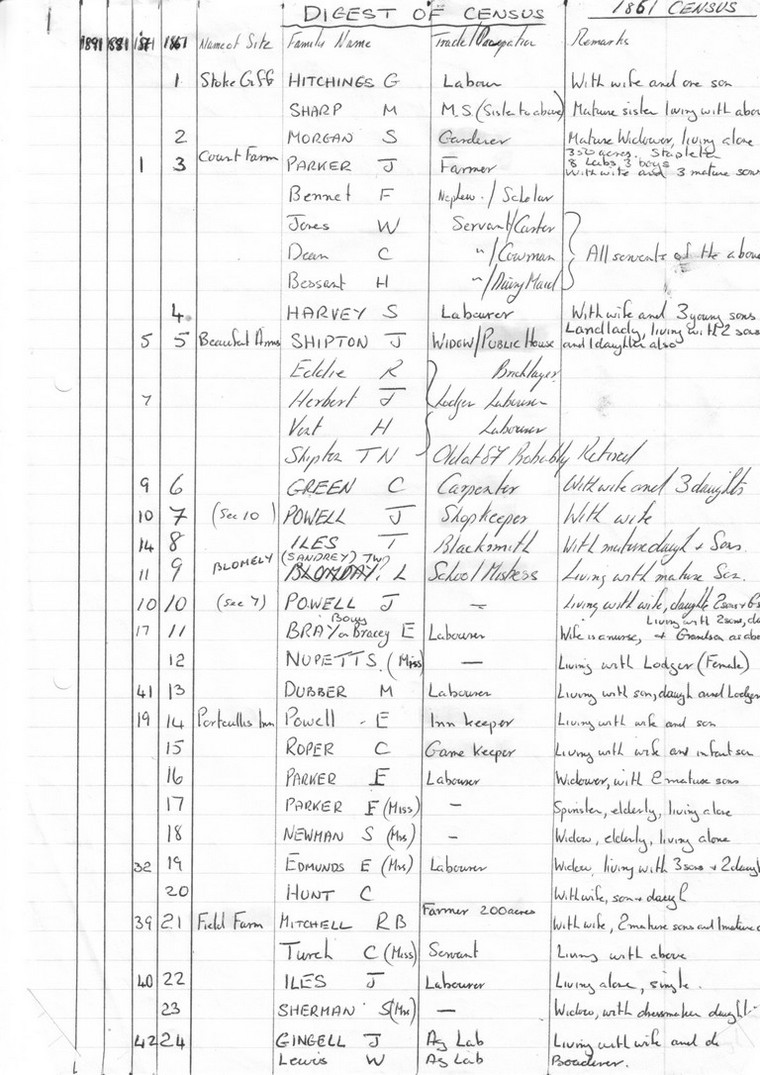 1 DIGEST OF CENSUS 1861 CENSUS
1891 1881 1871 1861 Name of Site Family Name Trade/Occupation Remarks
1 Stoke Giff HITCHINGS G Labour With wife and one son
SHARP M M.S. (Sister to above) Mature sister living with abov
2 MORGAN S Garderer Mature Widower, living alone
1 3 Court Farm PARKER J Farmer 350 acres. Stapleton
8 Labs, 3 boys
With wife and 3 mature sons
Bennet F Nephew / Scholar
Jones W Servant/Carter
Dean C " /Cowman All servents of the above
Bessent H " /Dairy Maid
4 HARVEY S Labourer With wife and 3 young sons
5 5 Beaufort Arms SHIPTON J WIDOW/Public House Landlady, living with 2 sons
and 1 daughter also
Eddie R Bricklayer
7 Herbert J Lodger Labourer
H Labourer
Shipton TN Old at 87 Probably Retired
9 6 GREEN C Carpenter With wife and 3 daughts
10 7 (See 10) POWELL J Shopkeeper With wife
14 8 ILES T Blacksmith With mature daugh + Sons.
11 9 BLOMELY (SANDREY) JW
BLOMDAY? L School Mistress Living with mature Son.
10 10 (See 7) POWELL J — Living with wife, daughte 2 sons +
17 11 BRAY or Bracey E Labourer Living with 2 sons, da
Wife is a nurse, + Grandson as abo
12 NUPETTS. (Miss) — Living with Lodger (Female)
41 13 DUBBER M Labourer Living with son, daugh and Lodger
19 14 Portcullis Inn Powell - E Inn keeper Living with wife and son
15 ROPER C Game Keeper Living with wife and infant son
16 PARKER E Labourer Widower, with 2 mature sons
17 PARKER F (Miss) — Spinster, elderly, living alone
18 NEWMAN S (Mrs) — Widow, elderly, living alone
32 19 EDMUNDS E (Mrs) Labourer Widow, living with 3 sons + 2 daugh
20 HUNT C With wife, son + daugh
39 21 Field Farm MITCHELL RB Farmer 200 acres With wife, 2 mature sons and 1 mature d
Turch C (Miss) Servant Living with above
40 22 ILES J Labourer Living alone, single.
23 SHERMAN S (Mrs) — Widow, with dressmaker daught
42 24 GINGELL J Ag Lab Living with wife and
Lewis W Ag Lab Boaderer.